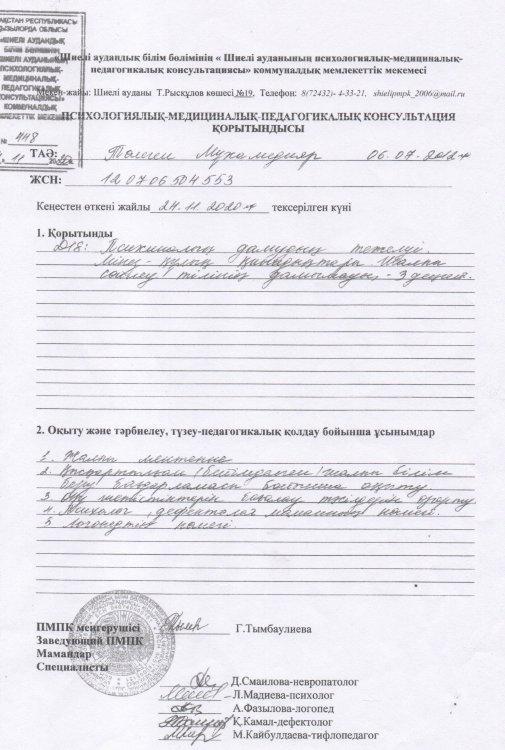 ҚАЗАҚСТАН РЕСПУБЛИКАСЫ
ҚЫЗЫЛОРДА ОБЛЫСЫ
«ШИЕЛІ АУДАНДЫҚ
БІЛІМ БӨЛІМІНІҢ
ШИЕЛІ АУДАНЫНЫҢ
ПСИХОЛОГИЯЛЫҚ-
МЕДИЦИНАЛЫҚ-
ПЕДАГОГИКАЛЫҚ
КОНСУЛЬТАЦИЯСЫ»
КОММУНАЛДЫҚ
МЕМЛЕКЕТТІК МЕКЕМЕСІ
№ 448
«Шиелі аудандық білім бөлімінің « Шиелі ауданының психологиялық-медициналық-
педагогикалық консультациясы» коммуналдық мемлекеттік мекемесі
Мекен-жайы: Шиелі ауданы Т.Рысқұлов көшесі №19, Телефон: 8(72432)- 4-33-21, shielipmpk_2006@mail.ru
ПСИХОЛОГИЯЛЫҚ-МЕДИЦИНАЛЫҚ-ПЕДАГОГИКАЛЫҚ КОНСУЛЬТАЦИЯ
ҚОРЫТЫНДЫСЫ
ТАӘ: Төлеген Мухамедияр 06.07.2012ж
ЖСН: 120706504553
Кеңестен өткені жайлы 24.11.2020ж тексерілген күні
1. Қорытынды
Психикалық дамудың тежелуі.
Мінез-құлық қиындықтары. Жалпы
сөйлеу тілінің дамымауы - 3 деңгей.
2. Оқыту және тәрбиелеу, түзеу-педагогикалық қолдау бойынша ұсынымдар
1. Жалпы мектепте
2. Қысқартылған /бейімделген/ жалпы білім
беру бағдарламасы бойынша оқыту.
3. Оқу жетістіктерін бағалау тәсілдерін өзгерту
4. Психолог, дефектолог маманның көмегі.
5. Логопедтік көмегі
ПМПК меңгерушісі Г.Тымбаулиева
Заведующий ПМПК
Мамандар
Специалисты
Д.Смаилова-невропатолог
Л.Мадиева-психолог
А.Фазылова-логопед
Қ.Камал-дефектолог
М.Кайбулдаева-тифлопедагог